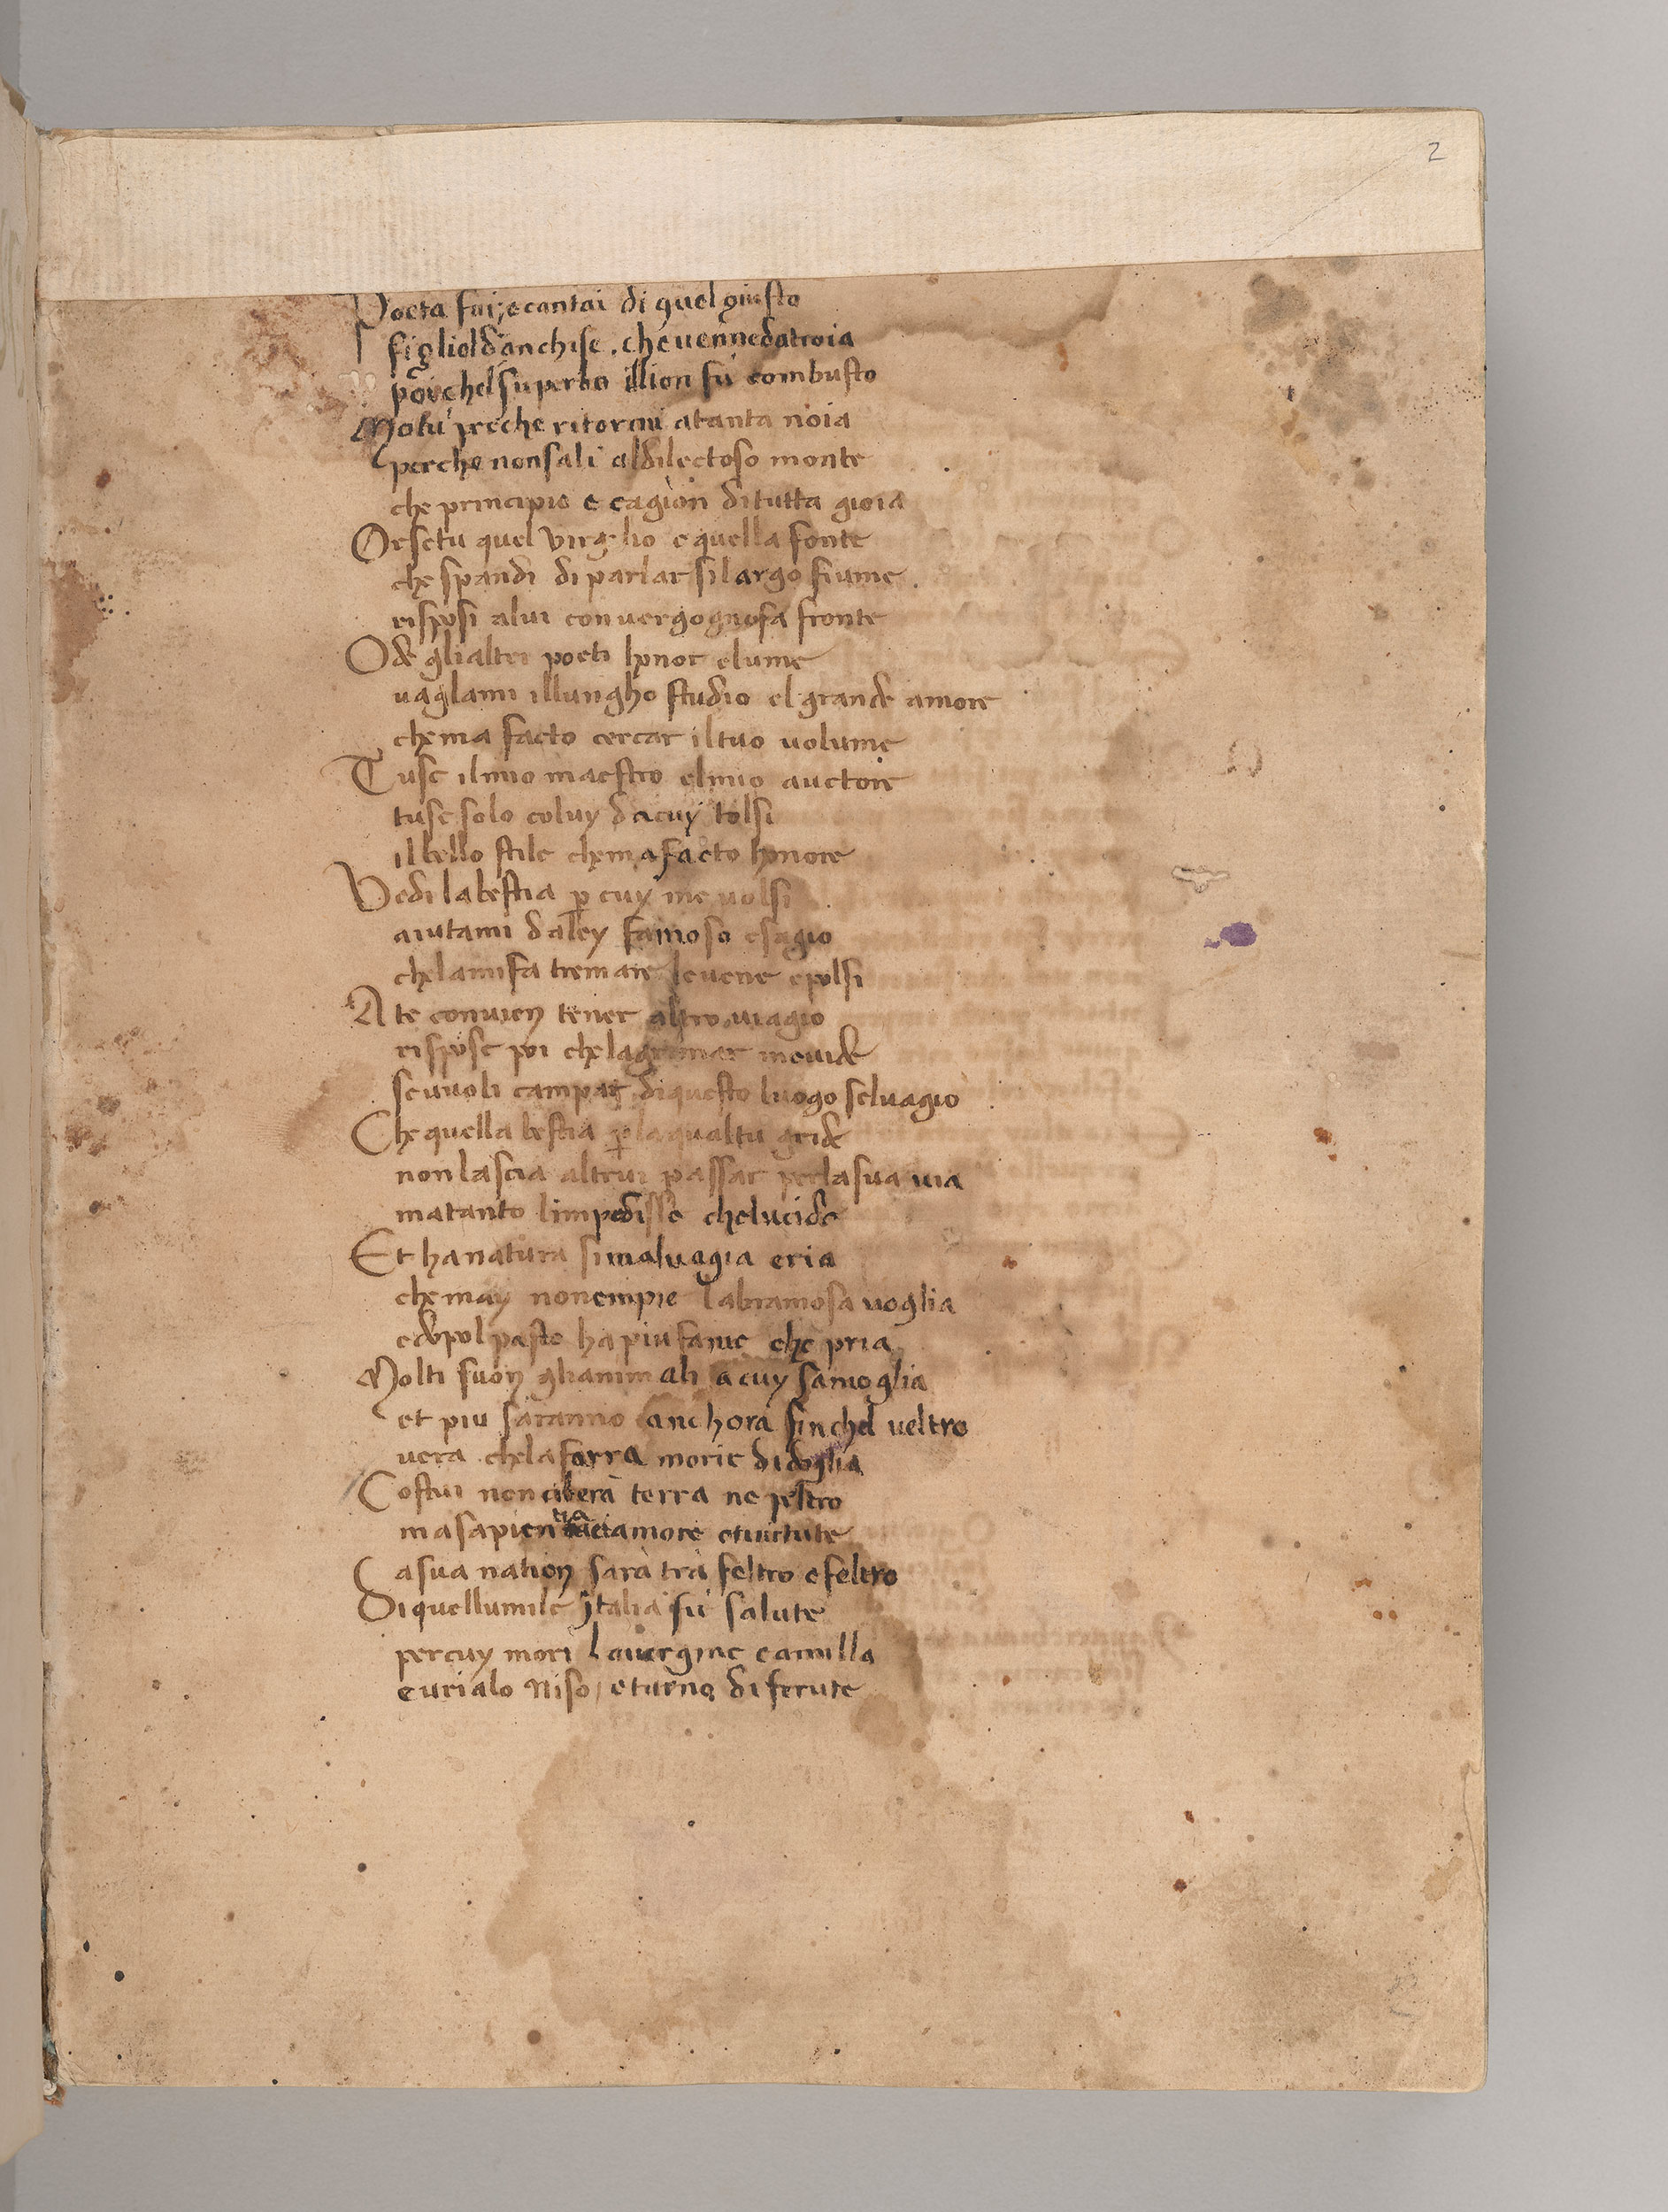 2
Poeta fui, e cantai di quel giusto
figliol danchise. che venne da troia
poi chel superbo illion fu combusto
Ma tu perche ritorni a tanta noia
perche non sali al dilectoso monte
che principio e cagion di tutta gioia
Or se tu quel virgilio e quella fonte
che spandi di parlar si largo fiume.
risposi a lui con vergognosa fronte
O de gli altri poeti honor e lume
vagliami il lungho studio el grande amore
che ma facto cercar il tuo volume
Tu se il mio maestro el mio auctore
tu se solo coluy da cuy tolsi
il bello stile che ma facto honore
Vedi la bestia p cuy me volsi
aiutami da ley famoso e sagio
chela mi fa tremare le vene e polsi
A te convien tener altro viagio
rispose poi che lagrimar me vide
se vuoli campar di questo luogo selvagio
Che quella bestia p la qual tu gride
non lascia altrui passar per la sua via
ma tanto limpedisse che lucide
Et ha natura si malvagia e ria
che may non empie la bramosa voglia
e dopol pasto ha piu fame che pria
Molti suon gli animali a cuy samoglia
et piu saranno anchora fin chel veltro
vera che la farra morir di doglia
Costui non cibera terra ne peltro
ma sapientia et amore et virtute
a sua nation sara tra feltro e feltro
Di quellumile Italia fu salute
per cuy mori la vergine camilla
eurialo Niso, e turno di ferute